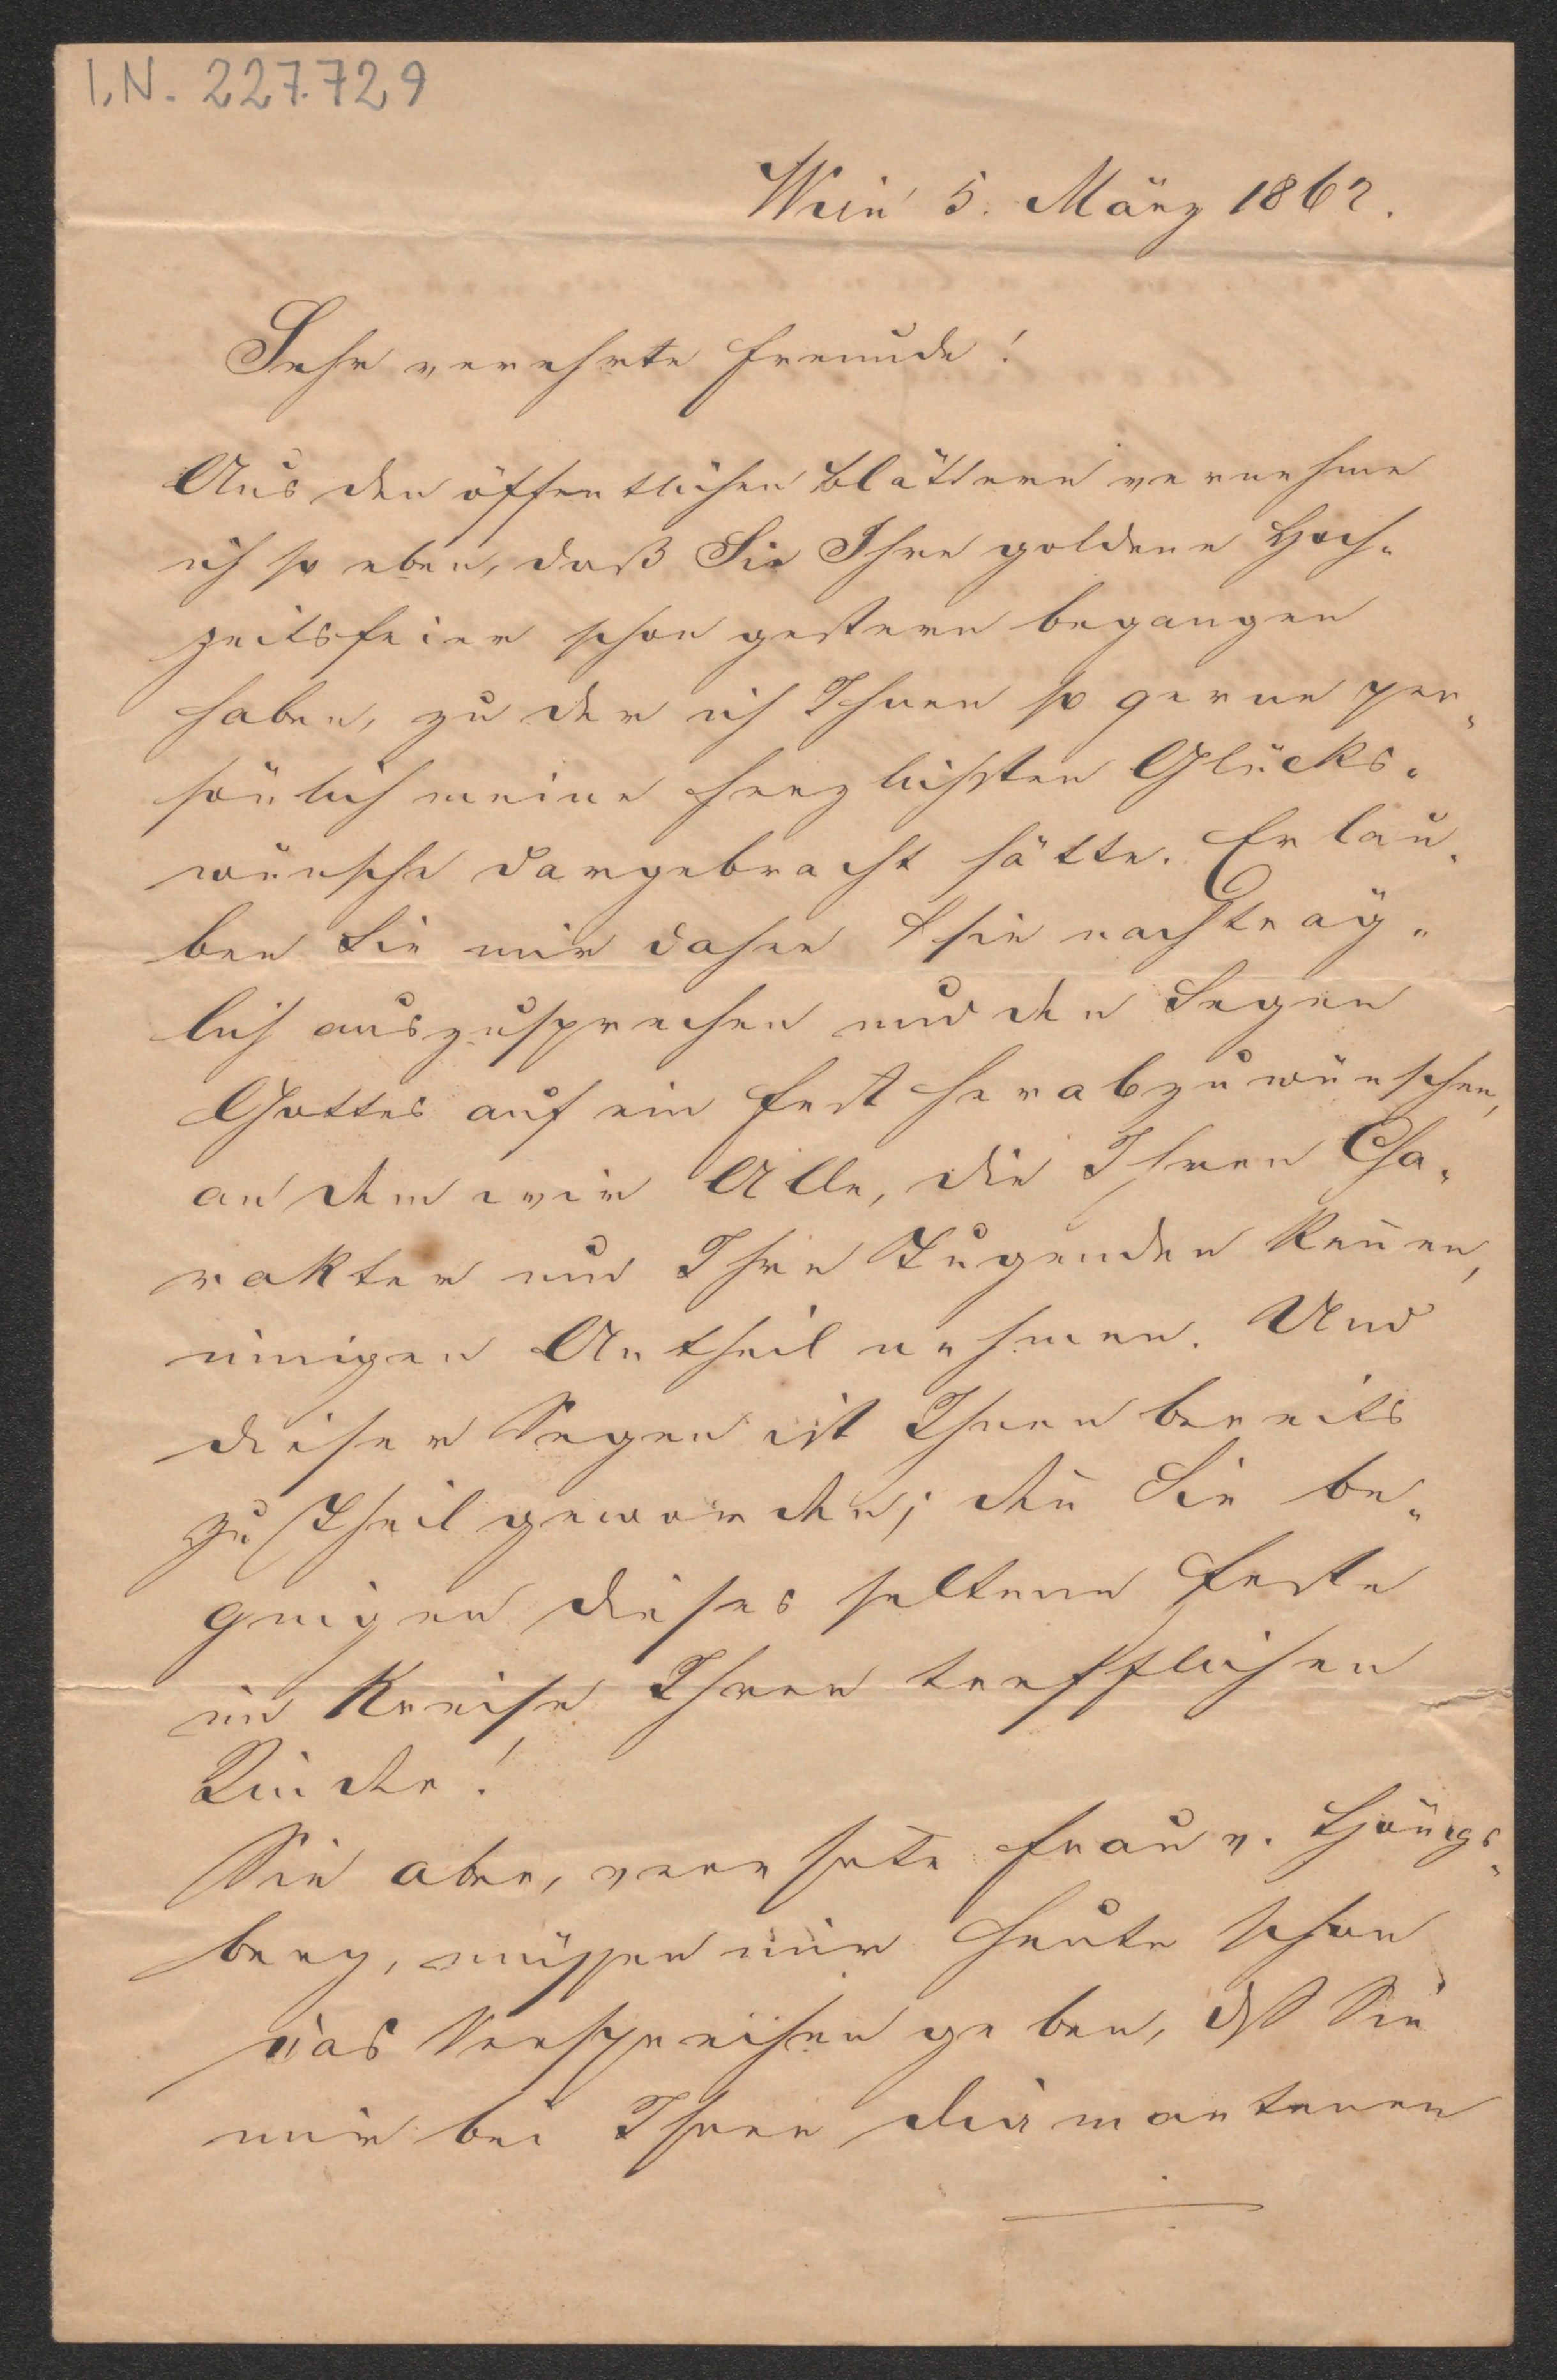 I.N. 227.729
Wien 5. März 1862.
Sehr verehrte Freunde!
Aus den öffentlichen Blättern vernehme
ich so eben, daß Sie Ihre goldene Hoch-
zeitsfeier schon gestern begangen
haben, zu der ich Ihnen so gerne per-
sönlich meine herzlichsten Glücks-
wünsche dargebracht hätte. Erlau-
ben Sie mir daher sie nachträg-
lich auszusprechen und den Segen
Gottes auf ein Fest herabzuwünschen,
an dem wir Alle, die Ihren Cha-
rakter und Ihre Tugenden ken̄en,
innigen Antheil nehmen. Und
dieser Segen ist Ihnen bereits
zu Theil geworden; den̄ Sie be-
gingen dieses seltene Feste
im Kreise Ihrer trefflichen
Kinder!
Sie aber, verehrte Frau v. Hönigs-
berg, müssen mir heute schon
das Versprechen geben, dß Sie
mir bei Ihrer diamantenen